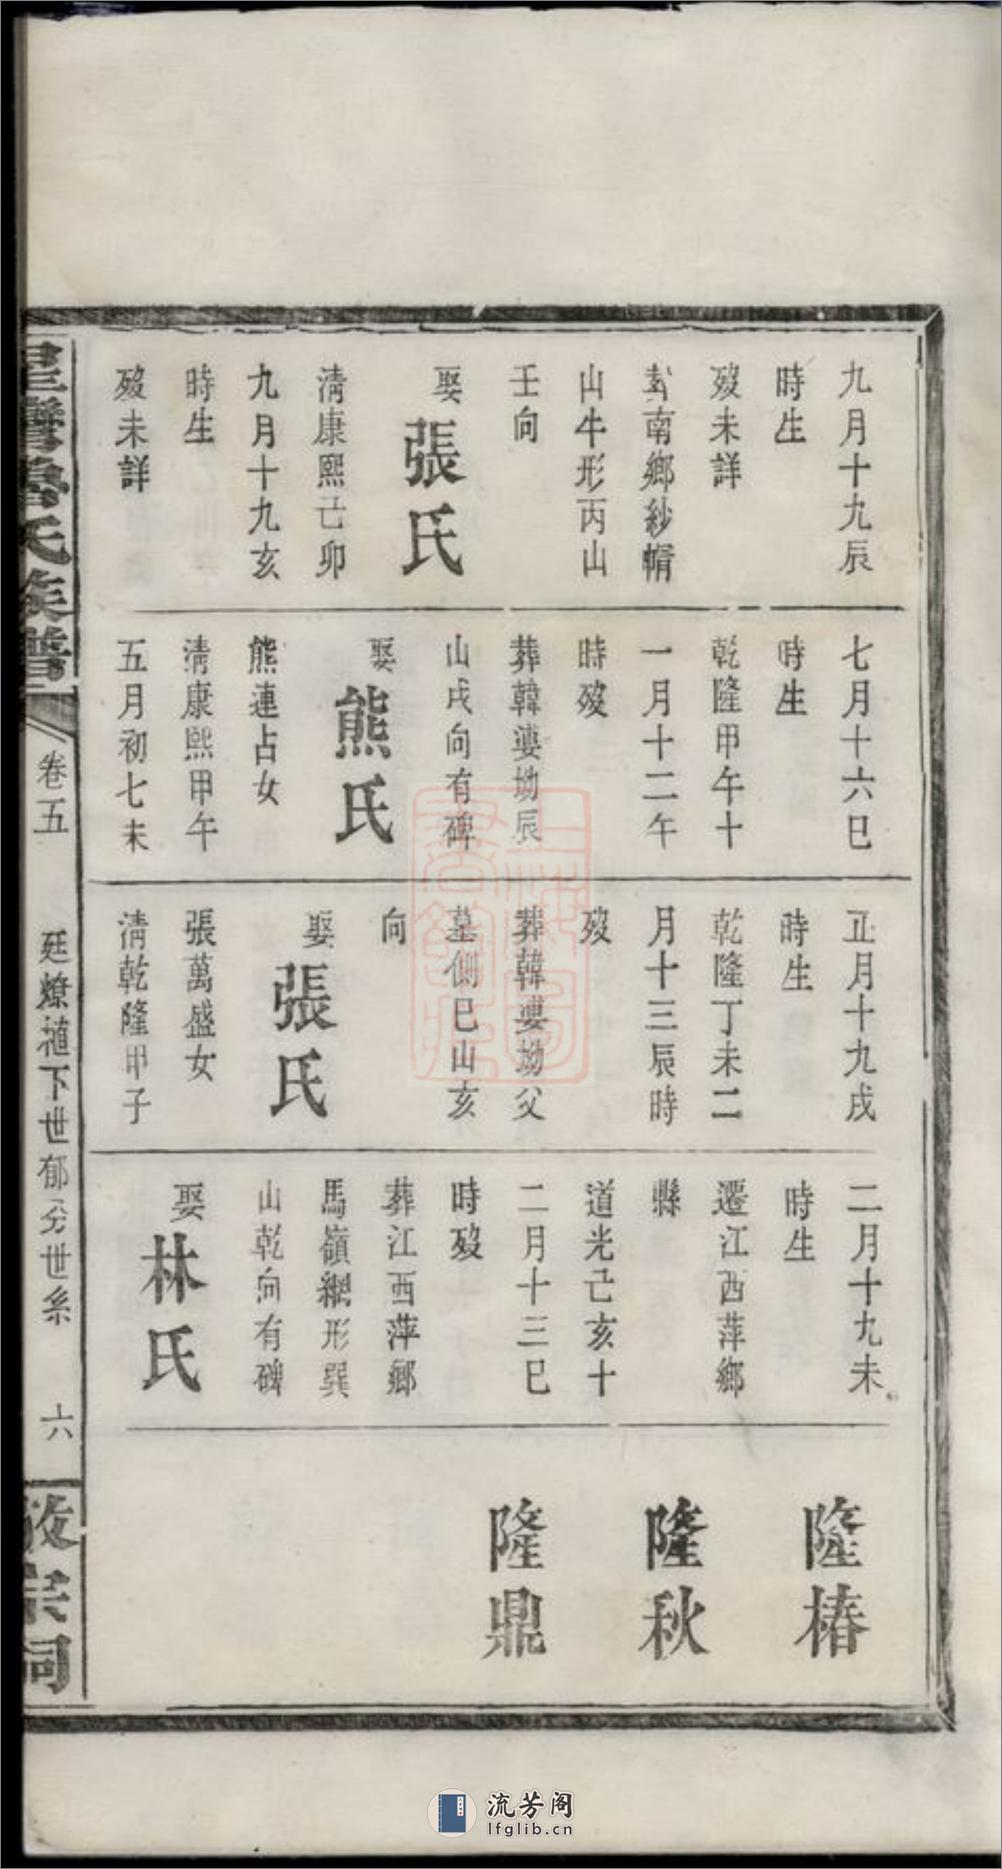 九月十九辰
時生
歿未詳
葬南鄉紗帽
山牛形丙山
壬向
娶張氏
清康熙己卯
九月十九亥
時生
歿未詳
七月十六巳
時生
乾隆甲午十
一月十二午
時歿
葬韓婆坳辰
山戌向有碑
娶熊氏
熊連占女
清康熙甲午
五月初七未
正月十九戌
時生
乾隆丁未二
月十三辰時
歿
葬韓婆坳父
墓側巳山亥
向
娶張氏
張萬盛女
清乾隆甲子
二月十九未
時生
遷江西萍鄉
縣
道光己亥十
二月十三巳
時歿
葬江西萍鄉
馬嶺網形巽
山乾向有碑
娶林氏
隆椿
隆秋
隆鼎
魯氏族譜
卷五
廷燎下世郁分世系
六
敬宗祠
上海圖書館藏
流芳阁
lfglib.cn